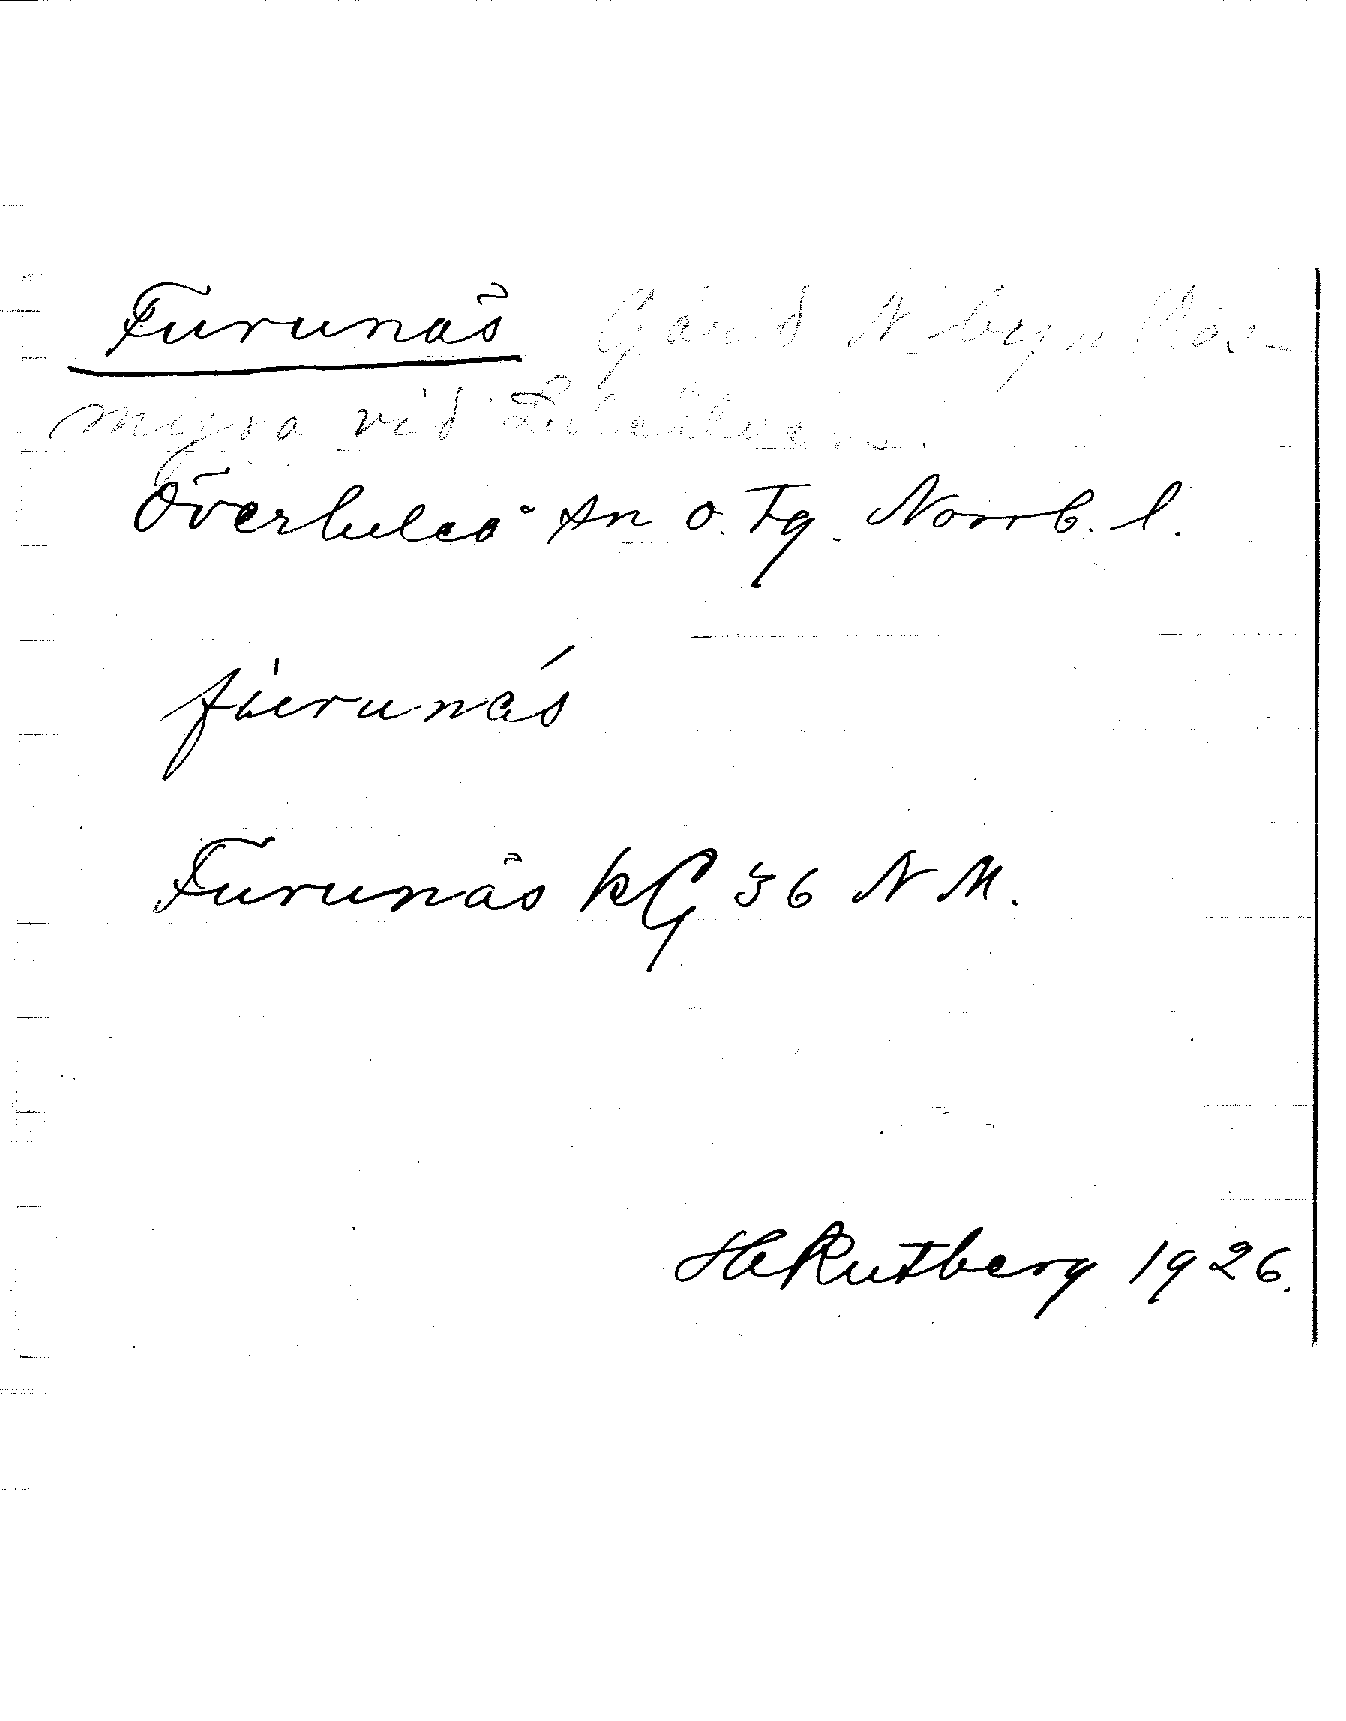 Furunäs Gård N. byn Pås-
myra vid Luleälven.
Överluleå sn o. Tg. Norrb. l.
fúrunás
Furunäs kG 36 N M.
HRutberg 1926.